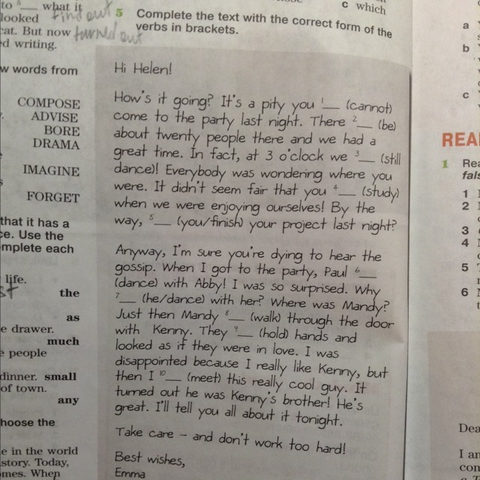 to ___ what it
looked find out
cat. But now turned out
ed writing.
w words from
COMPOSE
ADVISE
BORE
DRAMA
IMAGINE
FORGET
that it has a
ce. Use the
mplete each
life.
the
as
e drawer.
much
e people
dinner. small
of town.
any
hoose the
e in the world
story. Today,
omes. When
c which
5 Complete the text with the correct form of the
verbs in brackets.
Hi Helen!
How's it going? It's a pity you 1___ (cannot)
come to the party last night. There 2___ (be)
about twenty people there and we had a
great time. In fact, at 3 o'clock we 3___ (still
dance)! Everybody was wondering where you
were. It didn't seem fair that you 4___ (study)
when we were enjoying ourselves! By the
way, 5___ (you/finish) your project last night?
Anyway, I'm sure you're dying to hear the
gossip. When I got to the party, Paul 6___
(dance) with Abby! I was so surprised. Why
7___ (he/dance) with her? Where was Mandy?
Just then Mandy 8___ (walk) through the door
with Kenny. They 9___ (hold) hands and
looked as if they were in love. I was
disappointed because I really like Kenny, but
then I 10___ (meet) this really cool guy. It
turned out he was Kenny's brother! He's
great. I'll tell you all about it tonight.
Take care – and don't work too hard!
Best wishes,
Emma
a
b
c
REA
1 Rea
fals
1
2
3
4
5
6
Dea
I an
con